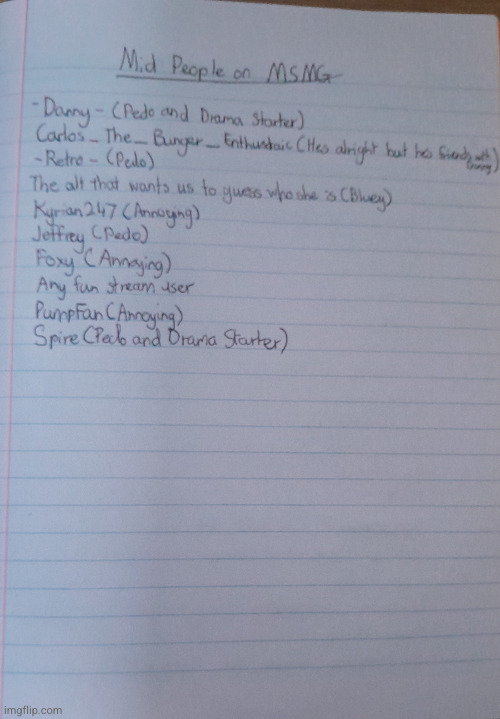 Mid People on MSMG
-Danny- (Pedo and Drama Starter)
Carlos_The_Burger_Enthusdaic (Hes alright but hes friends with Danny)
-Retro- (Pedo)
The alt that wants us to guess who she is (Bluey)
Kyrian247 (Annoying)
Jeffrey (Pedo)
Foxy (Annoying)
Any fun stream user
PumpFan (Annoying)
Spire (Pedo and Drama Starter)
imgflip.com